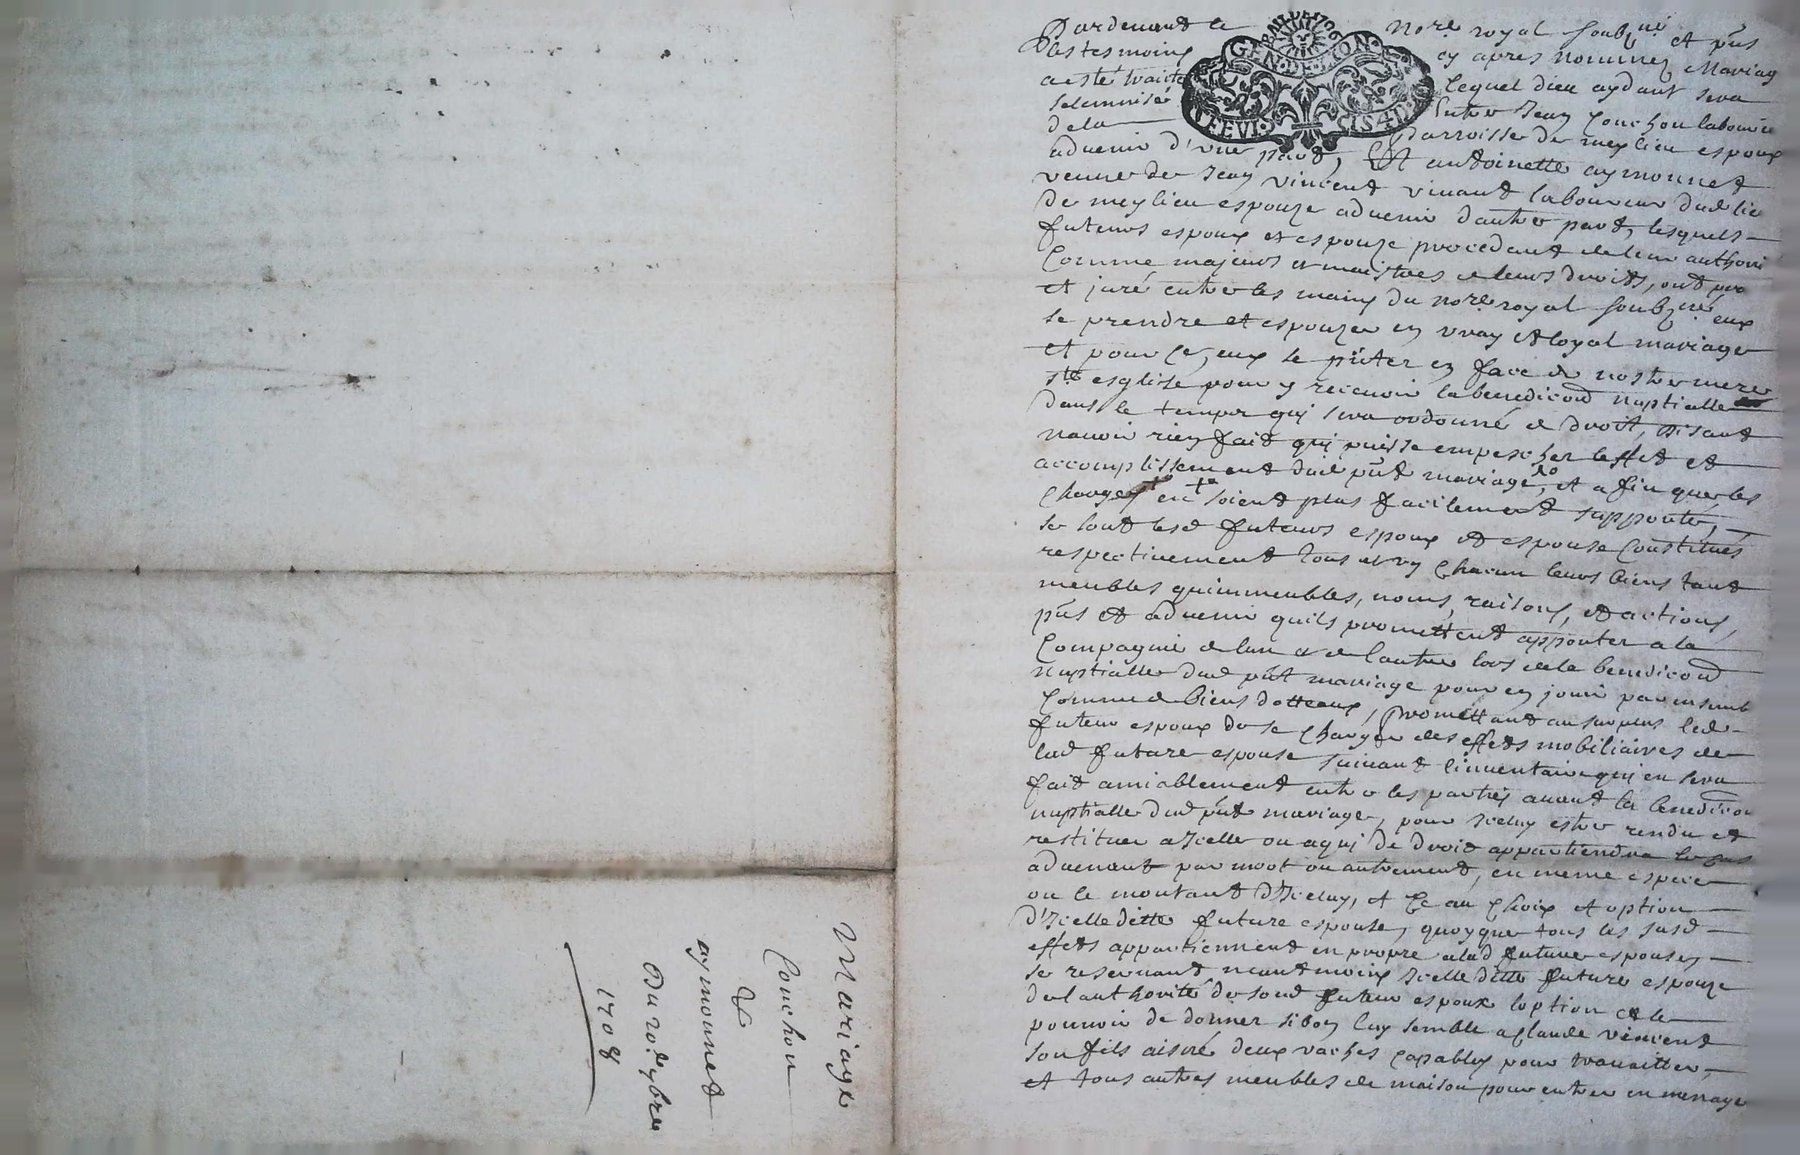 Pardeuant le nore royal soubzné et pñs
Les tesmoins cy apres nommez Mariag
a esté traicté lequel dieu aydant sera
solemnisé Entre Jean Conchon laboure
de la parroisse de meylieu espoux
aduenir d'vne part, Et antoinette aymonnet
veuue de Jean vincent viuant laboureur dud lie
de meylieu espouze aduenir d'autre part, lesquels
futeurs espoux et espouze procedant de leur authori
Comme majeurs et maistres de leurs droits, ont pro
et juré entre les mains du nore royal soubzné eux
se prendre et espouzer en vray et loyal mariage
et pour ce, eux se pñter en face de nostre mere
ste esglise pour y receuoir la benediction nuptialle
dans le temps qui sera ordonné de droit, disant
nauoir rien fait qui puisse empescher leffet et
accomplissement dud pñt mariage, et afin que les
charges en soient plus facilement supporté,
se sont lesd futeurs espoux et espouse Constitués
respectiuement tous et vn chacun leurs biens tant
meubles quimmeubles, noms, raisons, et actions,
pñs et aduenir quils promettent apporter a la
Compagnie de lun et de lautre lors de la benediction
nuptialle dud pñt mariage pour en jouir par ensemb
Comme de biens dotteaux, promettant au surplus led
futeur espoux de se charger des effets mobiliaires de
lad future espouse suiuant linuentaire qui en sera
fait amiablement entre les parties auant la benediction
nuptialle dud pñt mariage, pour Iceluy estre rendu et
restituer a Icelle ou a qui de droit appartiendra le cas
aduenant par mort ou autrement, en meme espece
ou le montant d'Iceluy, et Ce au choix et option
d'Icelle ditte future espouse, quoyque tous les susd
effets appartiennent en propre a lad future espouse,
se reseruant neantmoins Icelle ditte future espouze
de l'authorité de sond futeur espoux loption et le
pouuoir de donner si bon luy semble a Claude vincent
son fils aisné deux vaches capables pour trauailler,
et tous autres meubles de maison pour entrer en menage
GEN·DE·LION·
Mariage
Conchon
&
aymonnet
Du 20e xbre
1708